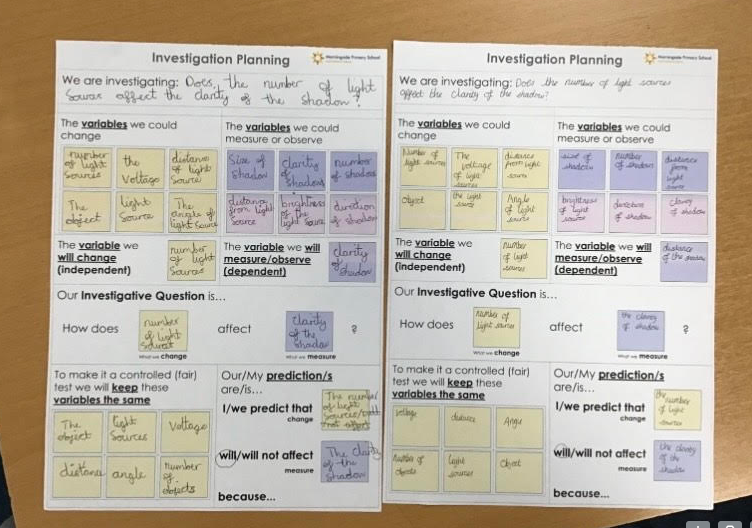 Investigation Planning
Morningside Primary School
We are investigating: Does the number of light
sources affect the clarity of the shadow?
The variables we could
change
The variables we could
measure or observe
number
of light
sources
the
voltage
distance
of light
source
Size of
shadow
clarity
of
shadow
number
of shadows
The
object
light
source
The
angle of
light source
distance
from light
source
brightness
of the
light source
direction
of shadow
The variable we
will change
(independent)
number
of light
sources
The variable we will
measure/observe
(dependent)
clarity
of
shadow
Our Investigative Question is...
How does
number
of light
sources
affect
clarity
of the
shadow
?
What we change
What we measure
To make it a controlled (fair)
test we will keep these
variables the same
The
object
light
sources
voltage
distance
angle
number
of
objects
Our/My prediction/s
are/is...
I/we predict that
The number
of light
sources
change
will/will not affect
The clarity
of the
shadow
measure
because...
Investigation Planning
Morningside Primary School
We are investigating: Does the number of light sources
affect the clarity of the shadow?
The variables we could
change
The variables we could
measure or observe
Number of
light sources
The
voltage
of light
sources
distance
from light
source
size of
shadow
number
of shadows
distance
from
light
source
object
the light
source
Angle
of light
source
brightness
of light
source
direction
of shadow
clarity
of shadow
The variable we
will change
(independent)
number
of light
sources
The variable we will
measure/observe
(dependent)
of the shadow
Our Investigative Question is...
How does
number of
light sources
affect
the clarity
of shadow
?
What we change
What we measure
To make it a controlled (fair)
test we will keep these
variables the same
voltage
distance
Angle
number of
objects
light
sources
Object
Our/My prediction/s
are/is...
I/we predict that
the number
of light
sources
change
will/will not affect
the clarity
of the
shadow
measure
because...